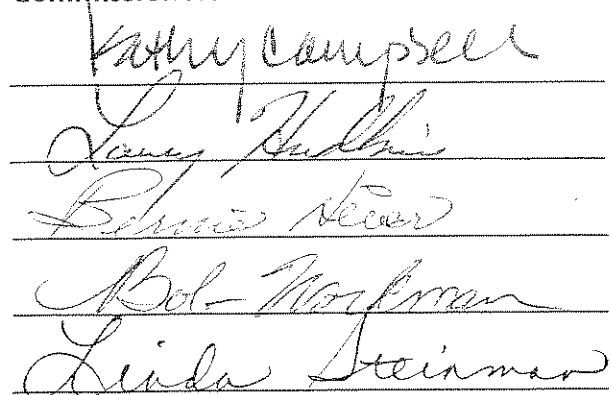 Kathy Campbell
Larry Hudkins
Bernie Heier
Bob Workman
Linda Steinman